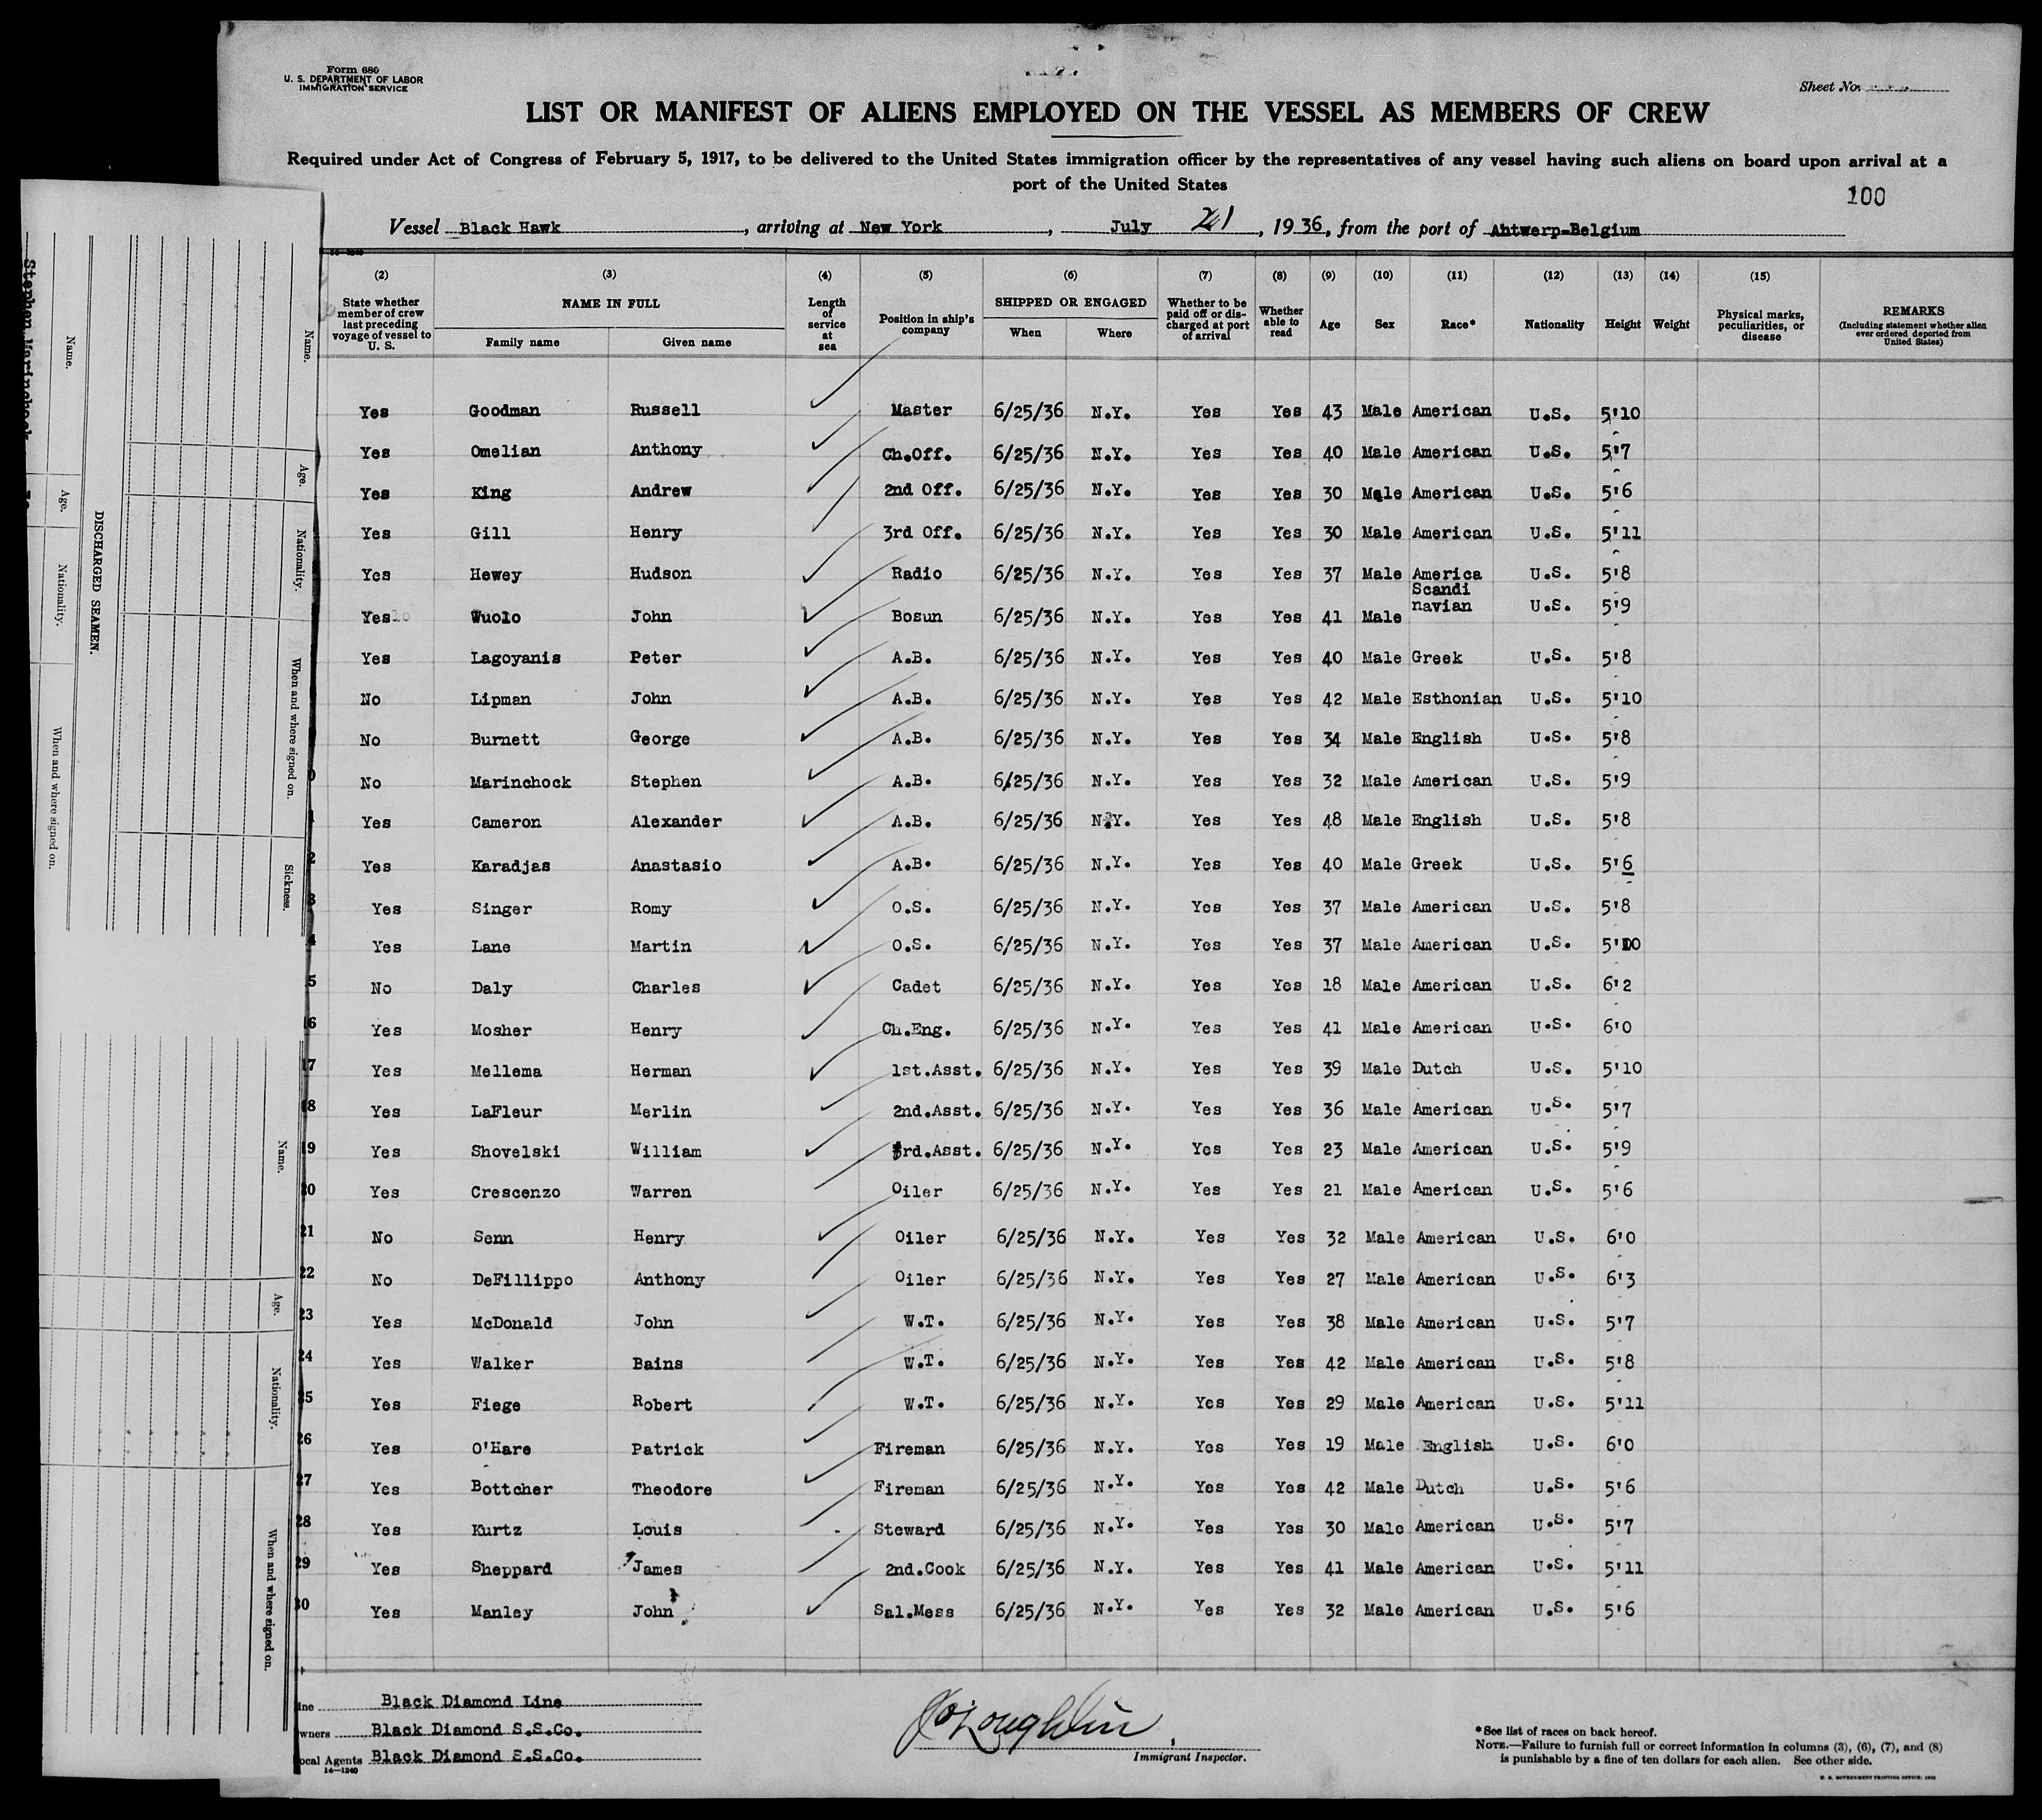 Form 680
U. S. DEPARTMENT OF LABOR
IMMIGRATION SERVICE
Sheet No.
LIST OR MANIFEST OF ALIENS EMPLOYED ON THE VESSEL AS MEMBERS OF CREW
Required under Act of Congress of February 5, 1917, to be delivered to the United States immigration officer by the representatives of any vessel having such aliens on board upon arrival at a
port of the United States
100
Vessel Black Hawk, arriving at New York, July 21, 1936, from the port of Antwerp-Belgium
(2) (3) (4) (5) (6) (7) (8) (9) (10) (11) (12) (13) (14) (15)
State whether member of crew last preceding voyage of vessel to U. S. NAME IN FULL Family name Given name Length of service at sea Position in ship's company SHIPPED OR ENGAGED When Where Whether to be paid off or discharged at port of arrival Whether able to read Age Sex Race* Nationality Height Weight Physical marks, peculiarities, or disease REMARKS (Including statement whether alien ever ordered deported from United States)
Yes Goodman Russell Master 6/25/36 N.Y. Yes Yes 43 Male American U.S. 5'10
Yes Omelian Anthony Ch.Off. 6/25/36 N.Y. Yes Yes 40 Male American U.S. 5'7
Yes King Andrew 2nd Off. 6/25/36 N.Y. Yes Yes 30 Male American U.S. 5'6
Yes Gill Henry 3rd Off. 6/25/36 N.Y. Yes Yes 30 Male American U.S. 5'11
Yes Hewey Hudson Radio 6/25/36 N.Y. Yes Yes 37 Male America U.S. 5'8
Yes Wuolo John Bosun 6/25/36 N.Y. Yes Yes 41 Male Scandi navian U.S. 5'9
Yes Lagoyanis Peter A.B. 6/25/36 N.Y. Yes Yes 40 Male Greek U.S. 5'8
No Lipman John A.B. 6/25/36 N.Y. Yes Yes 42 Male Esthonian U.S. 5'10
No Burnett George A.B. 6/25/36 N.Y. Yes Yes 34 Male English U.S. 5'8
0 No Marinchock Stephen A.B. 6/25/36 N.Y. Yes Yes 32 Male American U.S. 5'9
1 Yes Cameron Alexander A.B. 6/25/36 N.Y. Yes Yes 48 Male English U.S. 5'8
2 Yes Karadjas Anastasio A.B. 6/25/36 N.Y. Yes Yes 40 Male Greek U.S. 5'6
3 Yes Singer Romy O.S. 6/25/36 N.Y. Yes Yes 37 Male American U.S. 5'8
4 Yes Lane Martin O.S. 6/25/36 N.Y. Yes Yes 37 Male American U.S. 5'10
5 No Daly Charles Cadet 6/25/36 N.Y. Yes Yes 18 Male American U.S. 6'2
16 Yes Mosher Henry Ch.Eng. 6/25/36 N.Y. Yes Yes 41 Male American U.S. 6'0
17 Yes Mellema Herman 1st.Asst. 6/25/36 N.Y. Yes Yes 39 Male Dutch U.S. 5'10
18 Yes LaFleur Merlin 2nd.Asst. 6/25/36 N.Y. Yes Yes 36 Male American U.S. 5'7
19 Yes Shovelski William 3rd.Asst. 6/25/36 N.Y. Yes Yes 23 Male American U.S. 5'9
20 Yes Crescenzo Warren Oiler 6/25/36 N.Y. Yes Yes 21 Male American U.S. 5'6
21 No Senn Henry Oiler 6/25/36 N.Y. Yes Yes 32 Male American U.S. 6'0
22 No DeFillippo Anthony Oiler 6/25/36 N.Y. Yes Yes 27 Male American U.S. 6'3
23 Yes McDonald John W.T. 6/25/36 N.Y. Yes Yes 38 Male American U.S. 5'7
24 Yes Walker Bains W.T. 6/25/36 N.Y. Yes Yes 42 Male American U.S. 5'8
25 Yes Fiege Robert W.T. 6/25/36 N.Y. Yes Yes 29 Male American U.S. 5'11
26 Yes O'Hare Patrick Fireman 6/25/36 N.Y. Yes Yes 19 Male English U.S. 6'0
27 Yes Bottcher Theodore Fireman 6/25/36 N.Y. Yes Yes 42 Male Dutch U.S. 5'6
28 Yes Kurtz Louis Steward 6/25/36 N.Y. Yes Yes 30 Male American U.S. 5'7
29 Yes Sheppard James 2nd.Cook 6/25/36 N.Y. Yes Yes 41 Male American U.S. 5'11
30 Yes Manley John Sal.Mess 6/25/36 N.Y. Yes Yes 32 Male American U.S. 5'6
ine Black Diamond Line
wners Black Diamond S.S.Co.
ocal Agents Black Diamond S.S.Co.
14—1240
Immigrant Inspector.
*See list of races on back hereof.
NOTE.—Failure to furnish full or correct information in columns (3), (6), (7), and (8)
is punishable by a fine of ten dollars for each alien. See other side.
Stephen Marinchock
DISCHARGED SEAMEN.
Name.
Age.
Nationality.
When and where signed on.
Name.
Age.
Nationality.
When and where signed on.
Sickness.
Name.
Age.
Nationality.
When and where signed on.